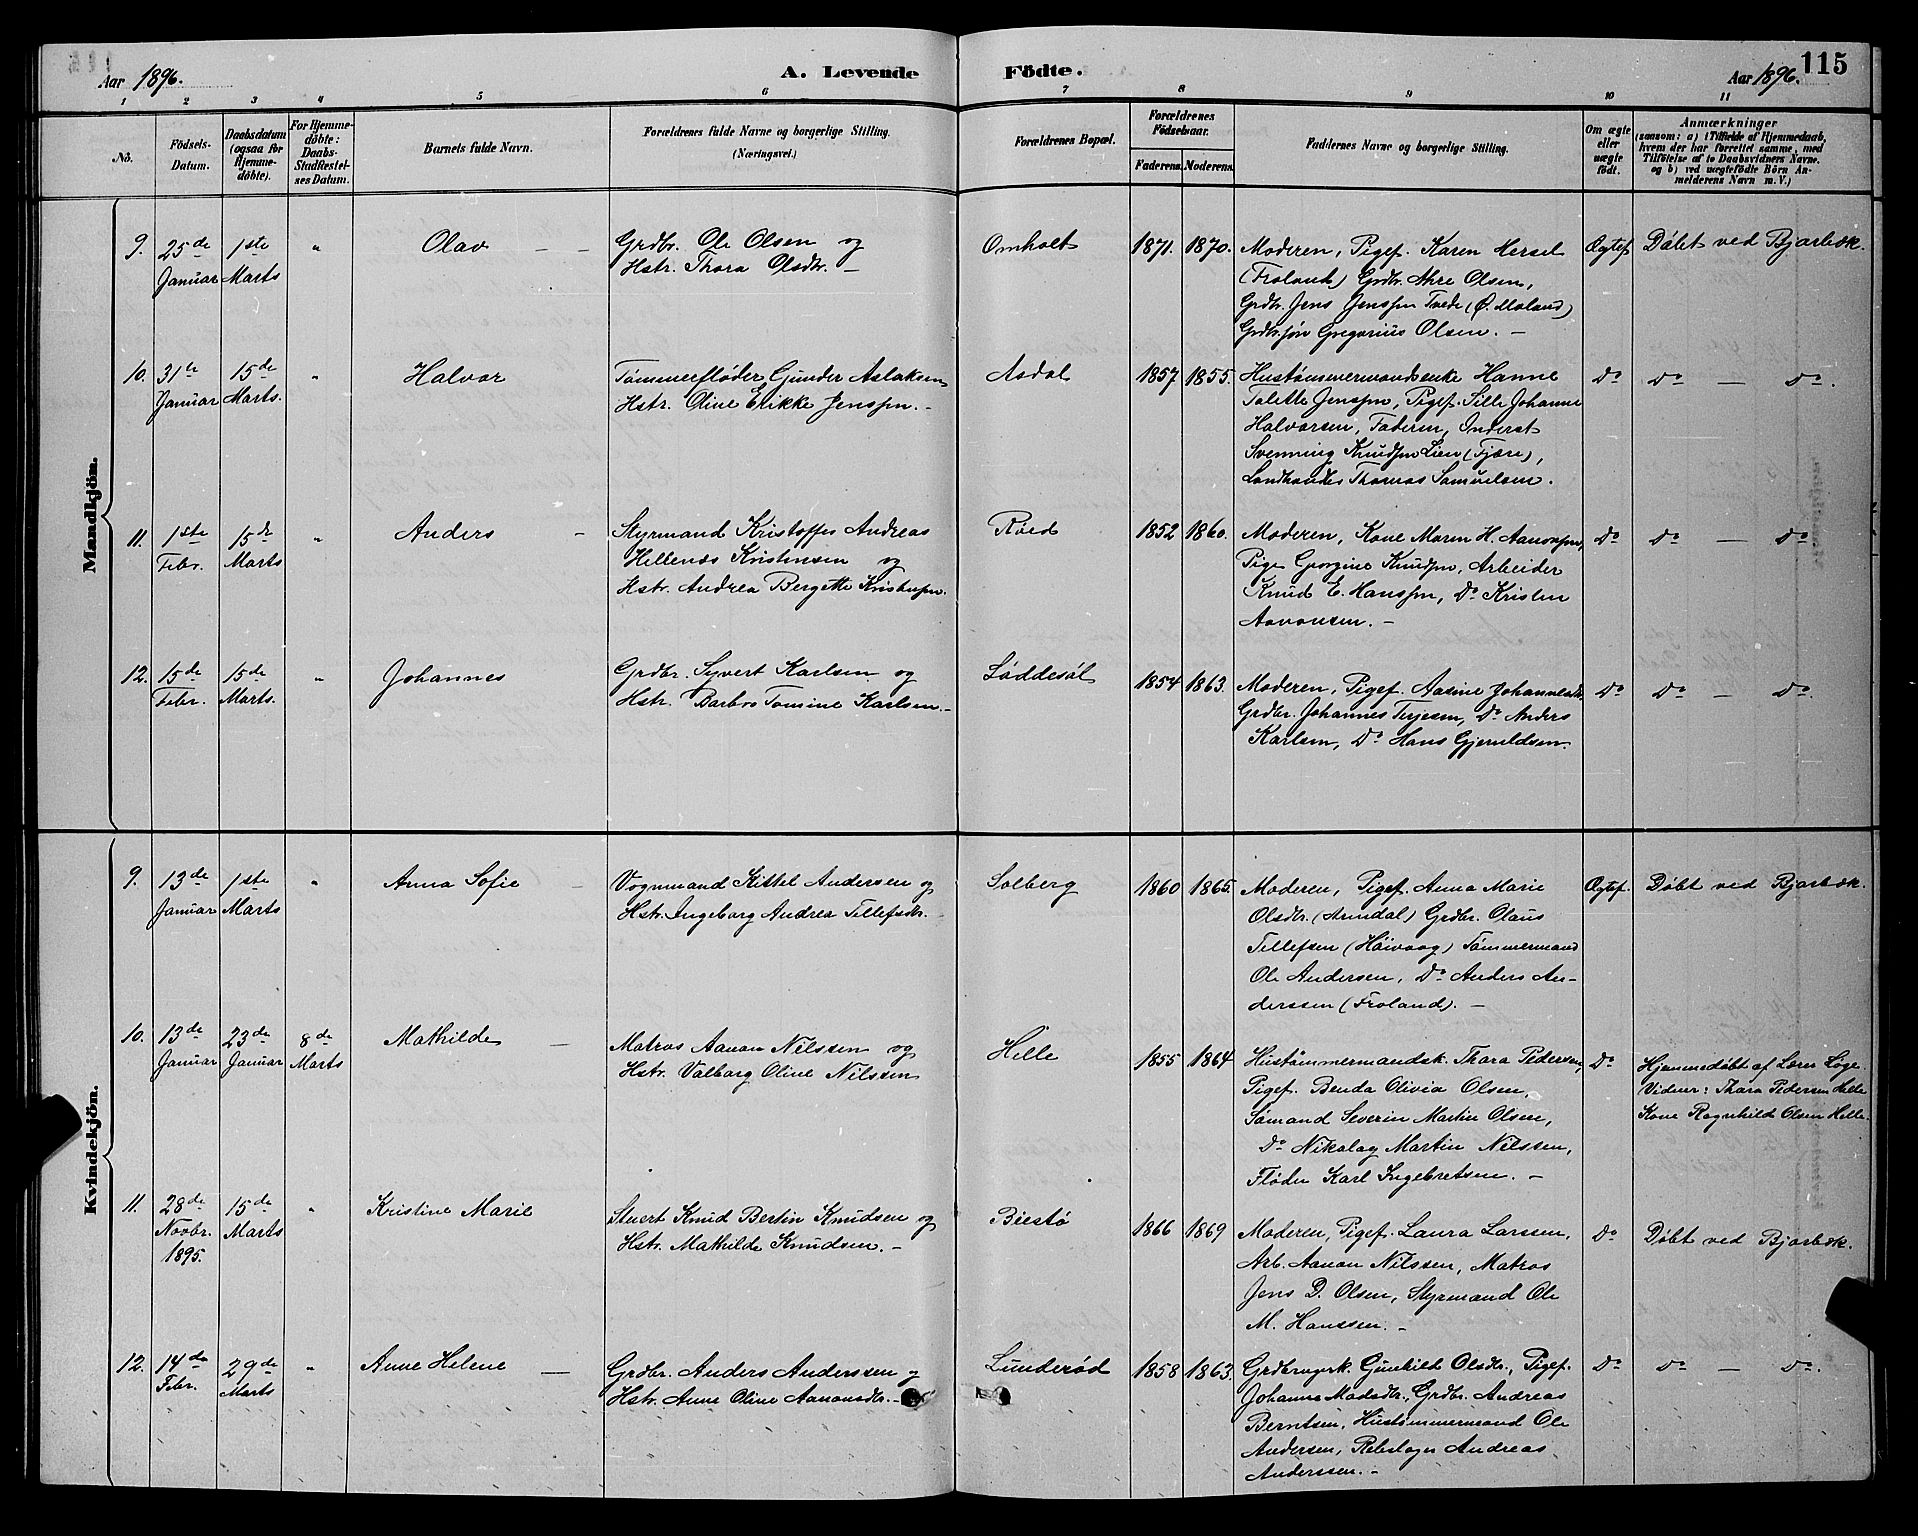 115
Aar 1896.
A. Levende
Födte.
Aar 1896.
1 2 3 4 5 6 7 8 9 10 11
No.
Födsels-
Datum.
Daabsdatum
(ogsaa for
Hjemme-
döbte).
For Hjemme-
döbte:
Daabs-
Stadfæstel-
ses Datum.
Barnets fulde Navn.
Forældrenes fulde Navne og borgerlige Stilling.
(Næringsvei.)
Forældrenes Bopæl.
Forældrenes
Födselsaar.
Faderens. Moderens.
Faddernes Navne og borgerlige Stilling.
Om ægte
eller
uægte
födt.
Anmærkninger
(saasom: a) i Tilfælde af Hjemmedaab,
hvem der har forrettet samme, med
Tilföielse af to Daabsvidners Navne.
og b) ved uægtefödte Börn An-
melderens Navn m. V.)
Mandkjön.
9. 25de Januar
1ste Marts
"
Olav
Grdbr. Ole Olsen og
Hstr. Thora Olsdtr. —
Omholt
1871. 1870.
Moderen, Pigef. Karen Hersel
(Froland) Grdbr. Olsen,
Grdbr. Jens Jenssen Tvede (Ø. Moland)
Grdbr.søn Gregorius Olsen. —
Ægtef.
Døbt ved Bjorbæk.
10. 31te Januar
15de Marts.
"
Halvor
Tømmerfløder Gunder Aslaksen
Hstr. Oline Erikke Jenssen. —
Asdal
1857 1855.
Hustømmermandsenke Hanne
Talette Jenssen, Pigef. Sille Johanne
Halvorsen, Faderen, Inderst
Svenning Knudsen Lien (Fjære),
Landhandler Thomas Samuelsen.
Do
Do — Do.
11. 1ste Febr.
15de Marts
"
Anders
Styrmand Kristoffer Andreas
Hellenæs Kristensen og
Hstr. Andrea Bergette Kristensen.
Røed
1852 1860.
Moderen, Kone Maren H. Aanonsen,
Pige Georgine Knudsen, Arbeider
Knud E. Hanssen, Do Kristen
Aanonsen. —
Do
Do — Do
12. 15de Febr.
15de Marts.
"
Johannes
Grdbr. Syvert Karlsen og
Hstr. Barbro Tomine Karlsen. —
Løddesøl
1854 1863.
Moderen, Pigef. Aasine Johannesdtr.
Grdbr. Johannes Terjesen, Do Anders
Karlsen, Do Hans Gjeruldsen.
Do
Do — Do.
Kvindekjön.
9. 13de Januar
1ste Marts
"
Anna Sofie
Vognmand Kittel Andersen og
Hstr. Ingeborg Andrea Tellefsdtr.
Solberg
1860 1865.
Moderen, Pigef. Anna Marie
Olsdtr. (Arendal) Grdbr. Olaus
Tellefsen (Høivaag) Tømmermand
Ole Andersen, Do Anders An-
derssen (Froland). —
Ægtef.
Døbt ved Bjorbæk.
10. 13de Januar
23de Januar
8de Marts
Mathilde
Matros Aanon Nilssen og
Hstr. Valborg Oline Nilssen
Helle
1855 1864
Hustømmermandsk. Thara Pedersen,
Pigef. Benda Olivia Olsen,
Sømand Severin Martin Olsen,
Do Nikolay Martin Nilssen,
Fløder Karl Ingebretsen. —
Do
Hjemmedøbt af Lærer Løge.
Vidner: Thara Pedersen Helle
Kone Ragnhild Olsen Helle.
11. 28de Novbr. 1895.
15de Marts
"
Kristine Marie
Stuert Knud Bertin Knudsen og
Hstr. Mathilde Knudsen. —
Biestø
1866 1869
Moderen, Pigef. Laura Larssen,
Arb. Aanon Nilssen, Matros
Jens D. Olsen, Styrmand Ole
M. Hanssen. —
Do
Døbt ved Bjorbæk.
12. 14de Febr.
29de Marts
"
Anne Helene
Grdbr. Anders Anderssen og
Hstr. Anne Oline Aanonsdtr. —
Lunderød
1858 1863.
Grdbrugerk. Gunhild Olsdtr., Pigef.
Johanne Madsdtr., Grdbr. Andreas
Berntsen, Hustømmermand Ole
Andersen, Rebslager Andreas
Anderssen. —
Do
Do — Do.